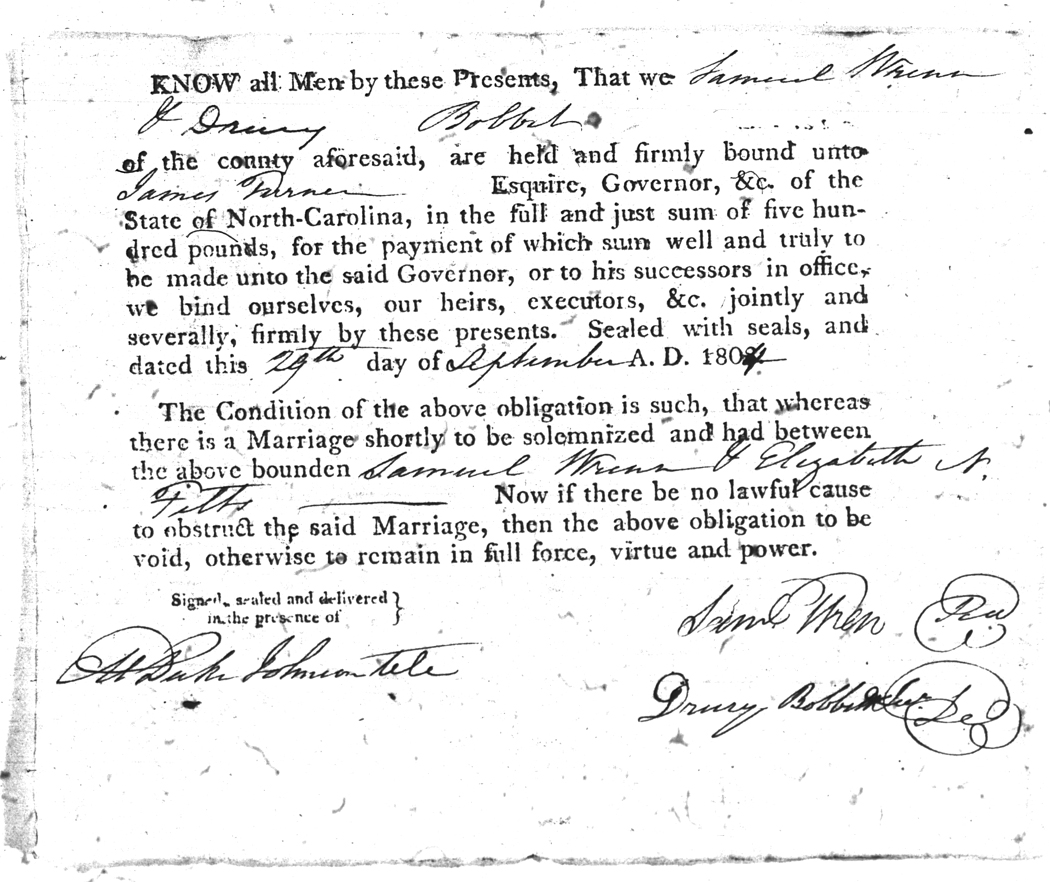 KNOW all Men by these Presents, That we Samuel Wrenn
& Drury Bobbit
of the county aforesaid, are held and firmly bound unto
James Turner Esquire, Governor, &c. of the
State of North-Carolina, in the full and just sum of five hun-
dred pounds, for the payment of which sum well and truly to
be made unto the said Governor, or to his successors in office,
we bind ourselves, our heirs, executors, &c. jointly and
severally, firmly by these presents. Sealed with seals, and
dated this 29th day of September A. D. 1804
The Condition of the above obligation is such, that whereas
there is a Marriage shortly to be solemnized and had between
the above bounden Samuel Wrenn & Elizabeth N.
Fitts Now if there be no lawful cause
to obstruct the said Marriage, then the above obligation to be
void, otherwise to remain in full force, virtue and power.
Signed, sealed and delivered }
in the presence of
Saml Wren
M Duke Johnson
Drury Bobbitt